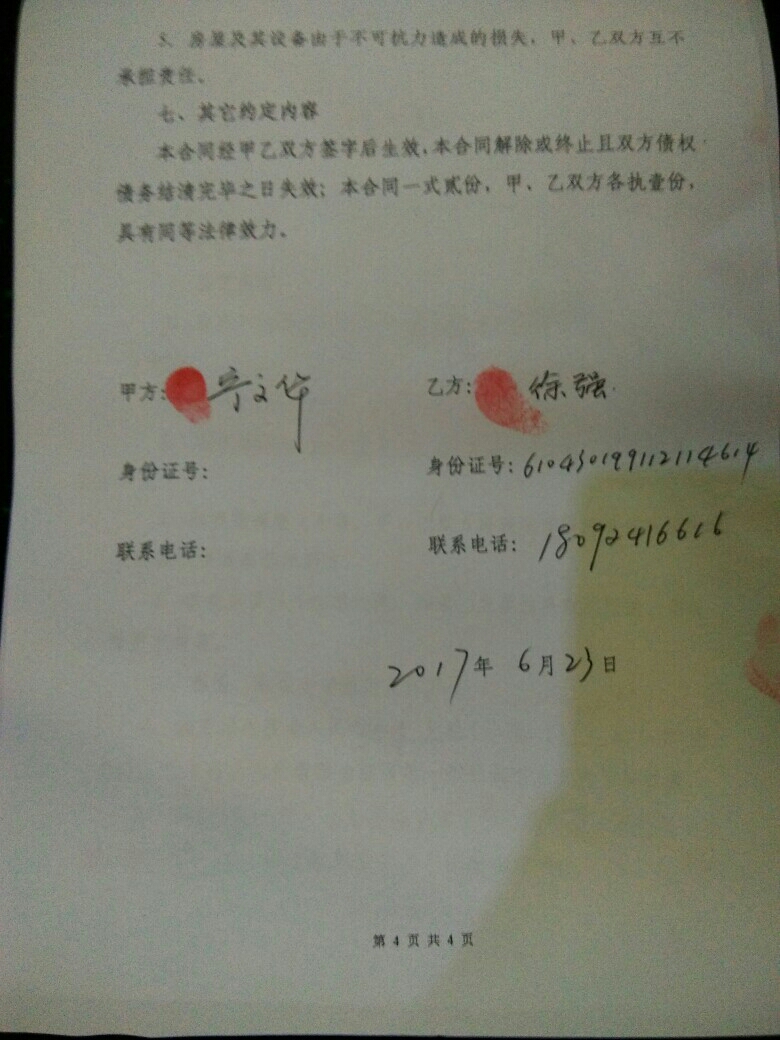 5、房屋及其设备由于不可抗力造成的损失，甲、乙双方互不
承担责任。
七、其它约定内容
本合同经甲乙双方签字后生效，本合同解除或终止且双方债权
债务结清完毕之日失效；本合同一式贰份，甲、乙双方各执壹份，
具有同等法律效力。
甲方：宁文华 乙方：徐强
身份证号： 身份证号：610430199112114614
联系电话： 联系电话：18092416616
2017年 6月23日
第 4 页 共 4 页